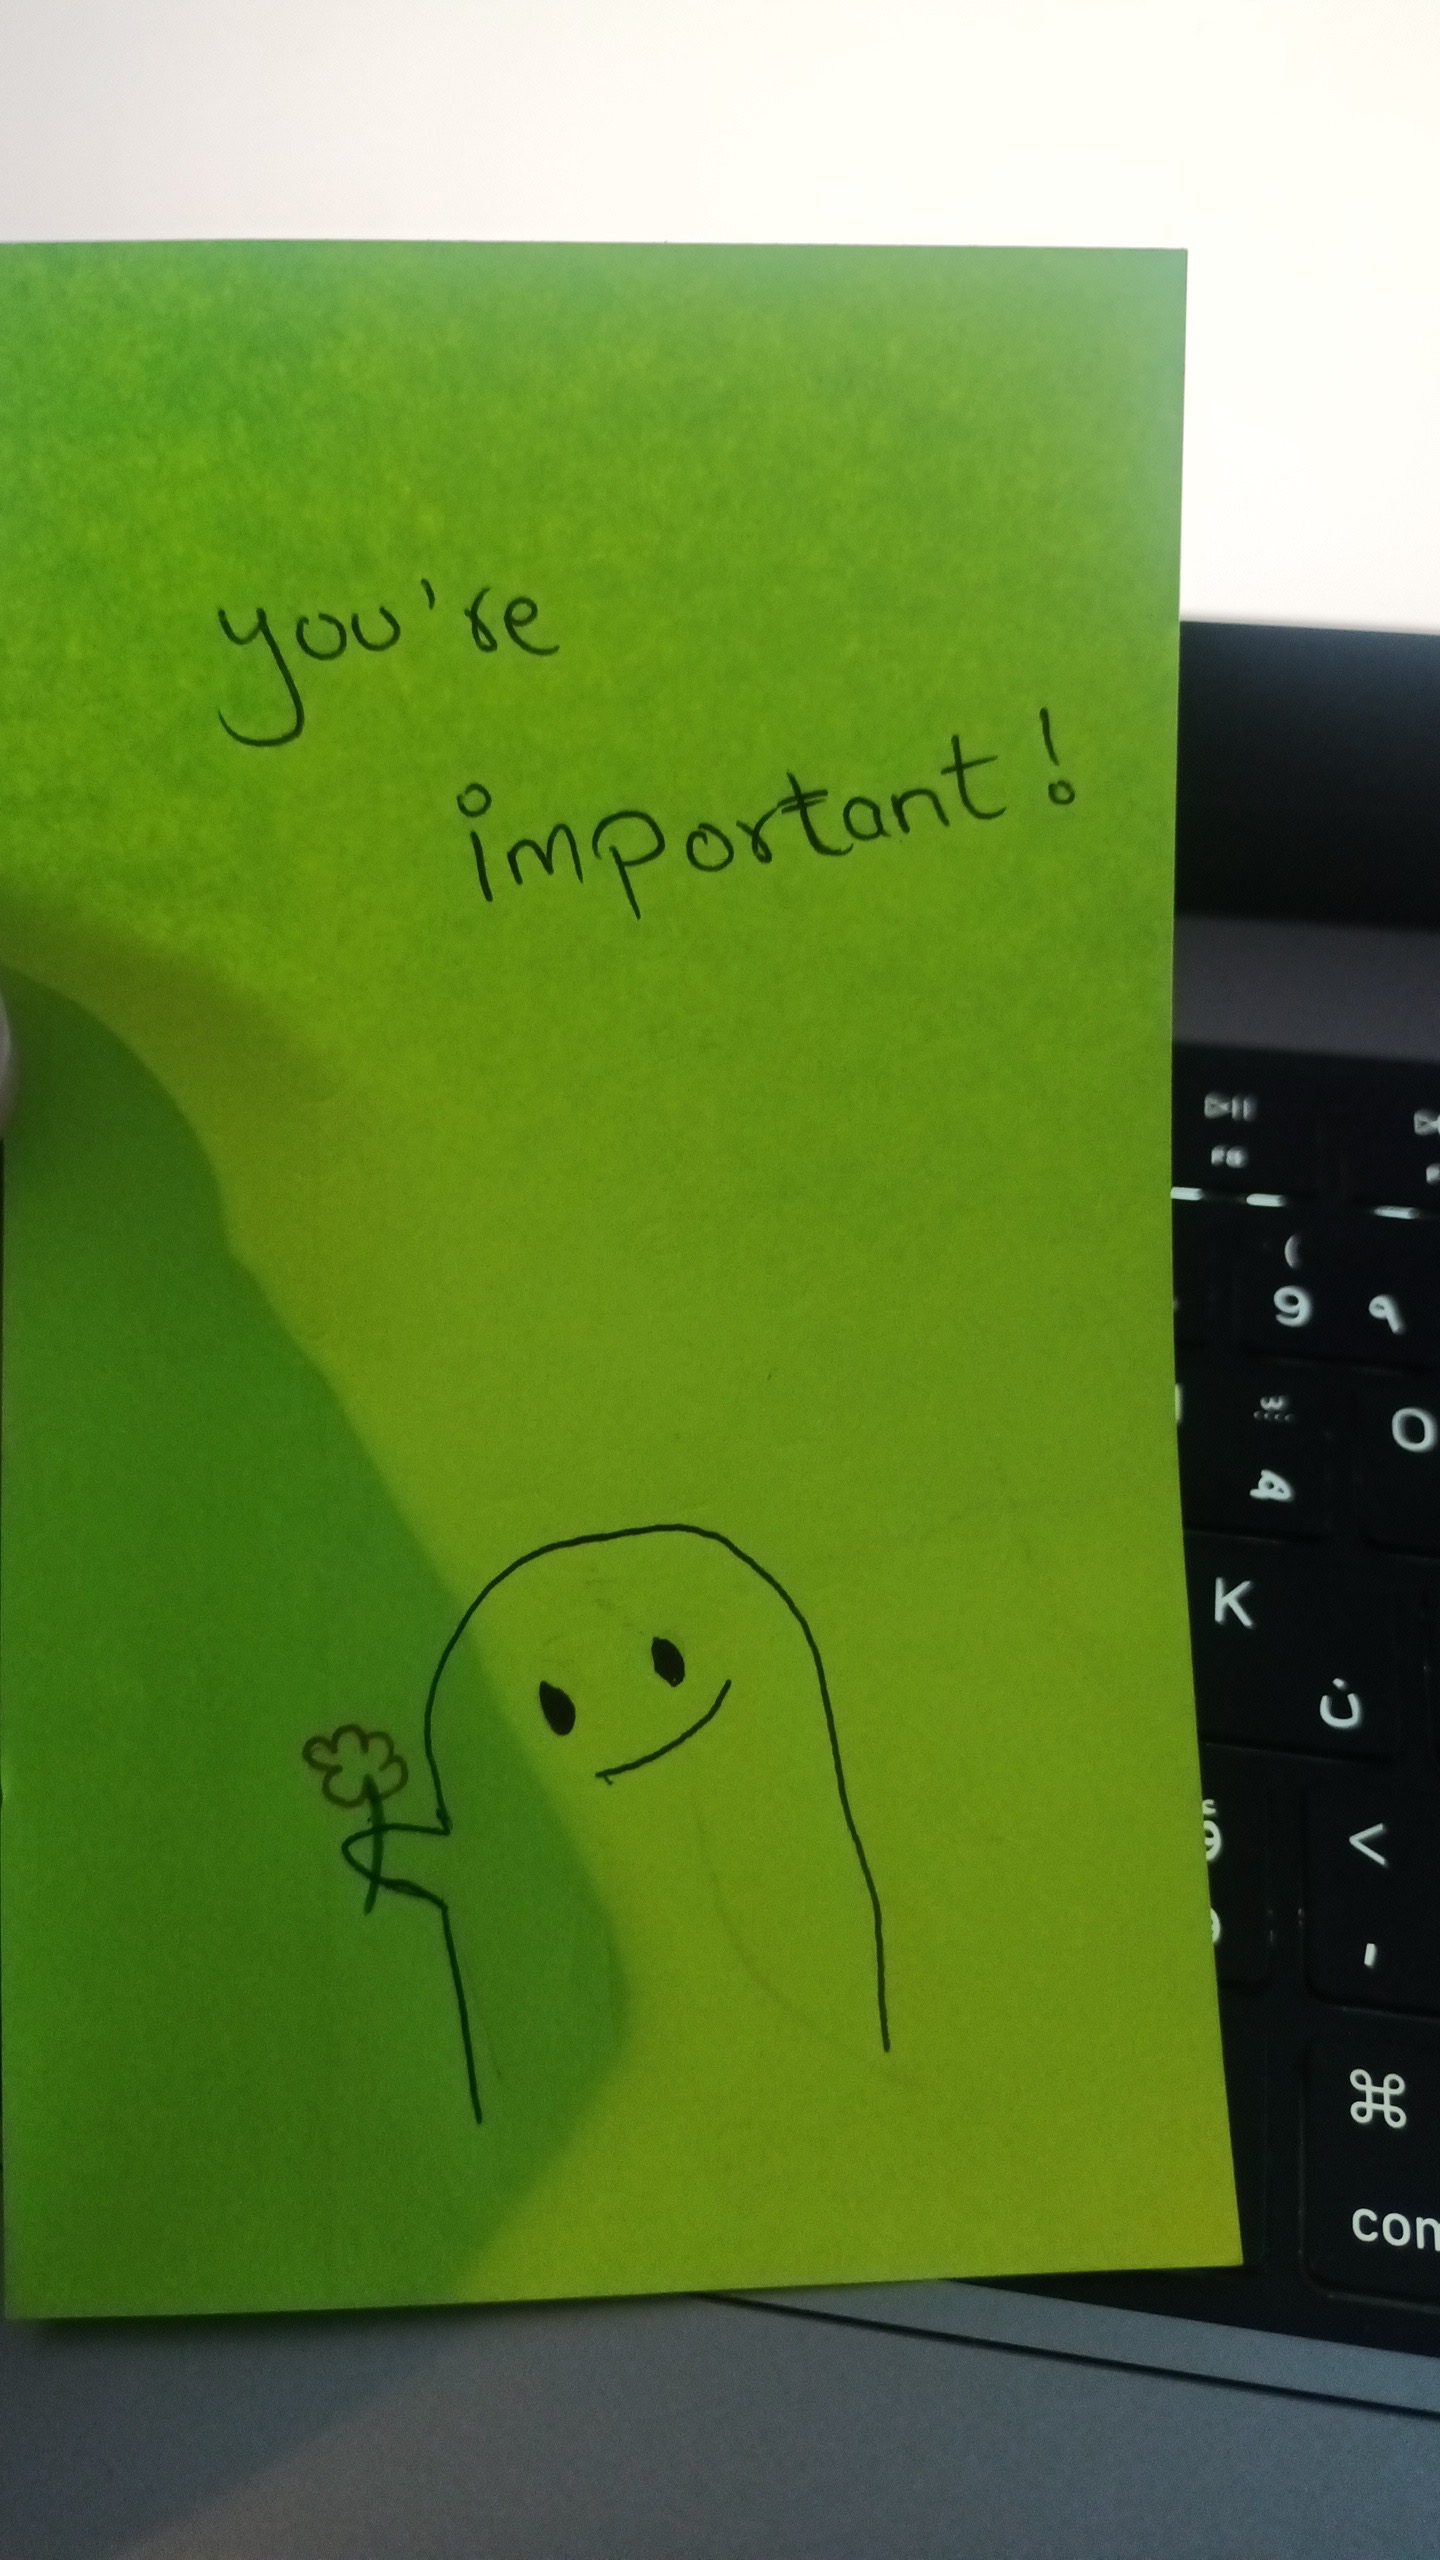 you're
important!
F8
(
9 ٩
O
ه
K
ن
<
,
⌘